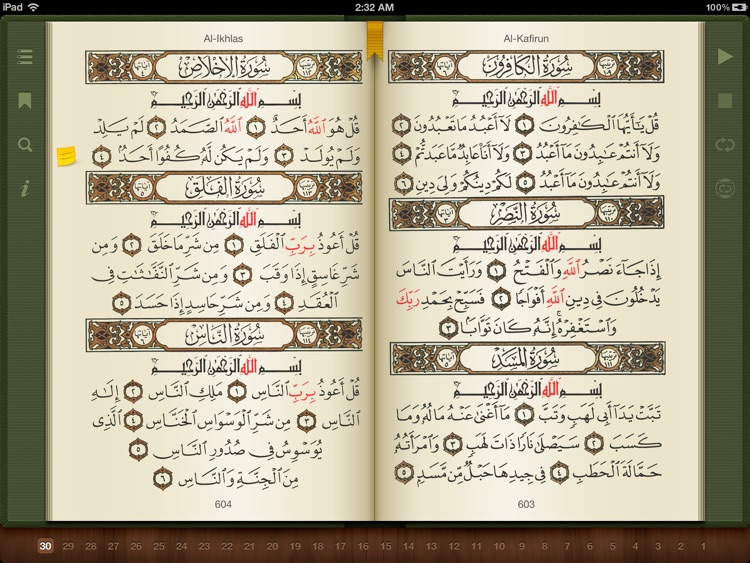 iPad
2:32 AM
100%
Al-Kafirun
ترتيبها ١٠٩ سُورَةُ الكَافِرُونَ آياتها ٦
بِسْمِ ٱللَّهِ ٱلرَّحْمَٰنِ ٱلرَّحِيمِ
قُلْ يَٰٓأَيُّهَا ٱلْكَٰفِرُونَ ١ لَآ أَعْبُدُ مَا تَعْبُدُونَ ٢
وَلَآ أَنتُمْ عَٰبِدُونَ مَآ أَعْبُدُ ٣ وَلَآ أَنَا۠ عَابِدٌ مَّا عَبَدتُّمْ ٤
وَلَآ أَنتُمْ عَٰبِدُونَ مَآ أَعْبُدُ ٥ لَكُمْ دِينُكُمْ وَلِىَ دِينِ ٦
ترتيبها ١١٠ سُورَةُ النَّصْرِ آياتها ٣
بِسْمِ ٱللَّهِ ٱلرَّحْمَٰنِ ٱلرَّحِيمِ
إِذَا جَآءَ نَصْرُ ٱللَّهِ وَٱلْفَتْحُ ١ وَرَأَيْتَ ٱلنَّاسَ
يَدْخُلُونَ فِى دِينِ ٱللَّهِ أَفْوَاجًا ٢ فَسَبِّحْ بِحَمْدِ رَبِّكَ
وَٱسْتَغْفِرْهُ ۚ إِنَّهُۥ كَانَ تَوَّابًۢا ٣
ترتيبها ١١١ سُورَةُ المَسَدِ آياتها ٥
بِسْمِ ٱللَّهِ ٱلرَّحْمَٰنِ ٱلرَّحِيمِ
تَبَّتْ يَدَآ أَبِى لَهَبٍ وَتَبَّ ١ مَآ أَغْنَىٰ عَنْهُ مَالُهُۥ وَمَا
كَسَبَ ٢ سَيَصْلَىٰ نَارًا ذَاتَ لَهَبٍ ٣ وَٱمْرَأَتُهُۥ
حَمَّالَةَ ٱلْحَطَبِ ٤ فِى جِيدِهَا حَبْلٌ مِّن مَّسَدٍۭ ٥
603
Al-Ikhlas
ترتيبها ١١٢ سُورَةُ الإِخْلَاصِ آياتها ٤
بِسْمِ ٱللَّهِ ٱلرَّحْمَٰنِ ٱلرَّحِيمِ
قُلْ هُوَ ٱللَّهُ أَحَدٌ ١ ٱللَّهُ ٱلصَّمَدُ ٢ لَمْ يَلِدْ
وَلَمْ يُولَدْ ٣ وَلَمْ يَكُن لَّهُۥ كُفُوًا أَحَدٌۢ ٤
ترتيبها ١١٣ سُورَةُ الفَلَقِ آياتها ٥
بِسْمِ ٱللَّهِ ٱلرَّحْمَٰنِ ٱلرَّحِيمِ
قُلْ أَعُوذُ بِرَبِّ ٱلْفَلَقِ ١ مِن شَرِّ مَا خَلَقَ ٢ وَمِن
شَرِّ غَاسِقٍ إِذَا وَقَبَ ٣ وَمِن شَرِّ ٱلنَّفَّٰثَٰتِ فِى
ٱلْعُقَدِ ٤ وَمِن شَرِّ حَاسِدٍ إِذَا حَسَدَ ٥
ترتيبها ١١٤ سُورَةُ النَّاسِ آياتها ٦
بِسْمِ ٱللَّهِ ٱلرَّحْمَٰنِ ٱلرَّحِيمِ
قُلْ أَعُوذُ بِرَبِّ ٱلنَّاسِ ١ مَلِكِ ٱلنَّاسِ ٢ إِلَٰهِ
ٱلنَّاسِ ٣ مِن شَرِّ ٱلْوَسْوَاسِ ٱلْخَنَّاسِ ٤ ٱلَّذِى
يُوَسْوِسُ فِى صُدُورِ ٱلنَّاسِ ٥
مِنَ ٱلْجِنَّةِ وَٱلنَّاسِ ٦
604
30 29 28 27 26 25 24 23 22 21 20 19 18 17 16 15 14 13 12 11 10 9 8 7 6 5 4 3 2 1